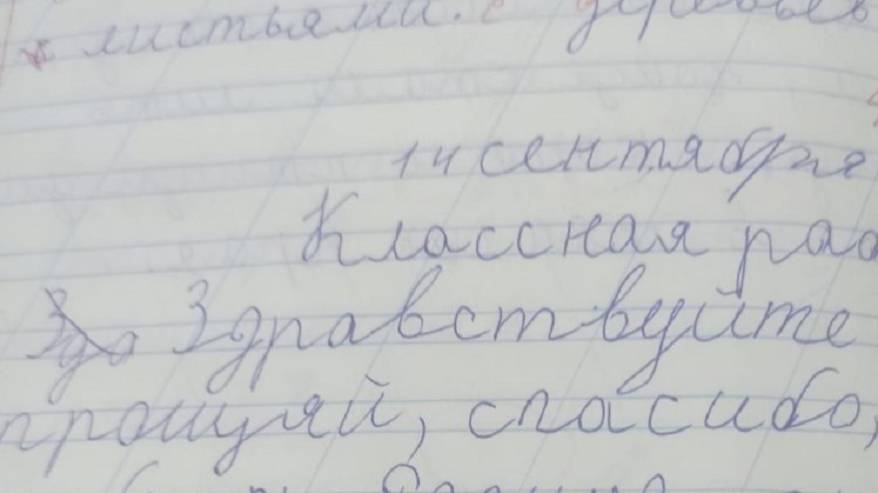 листьями. с деревьев
14 сентября
Классная раб
Зда Здравствуйте
прощяй, спасибо,